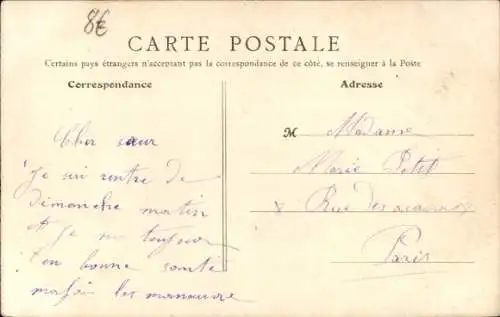 8€
CARTE POSTALE
Certains pays étrangers n'acceptant pas la correspondance de ce côté, se renseigner à la Poste
Correspondance
Adresse
Cher sœur
Je sui rentre de
dimanche matin
et je sui toujour
en bonne santé
les manœuvre
M Madame
Marie Petit
8 Rue des
Paris